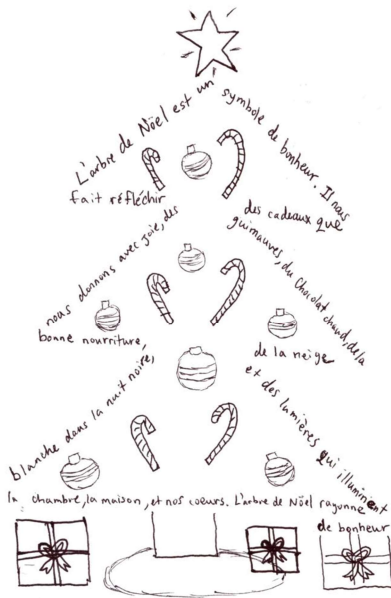 L'arbre de Nöel est un
symbole de bonheur. Il nous
fait réfléchir
des cadeaux que
nous donnons avec joie, des
guimauves, du chocolat chaud, de la
bonne nourriture,
de la neige
blanche dans la nuit noire,
et des lumières qui illuminent
la chambre, la maison, et nos coeurs. L'arbre de Nöel rayonne
de bonheur